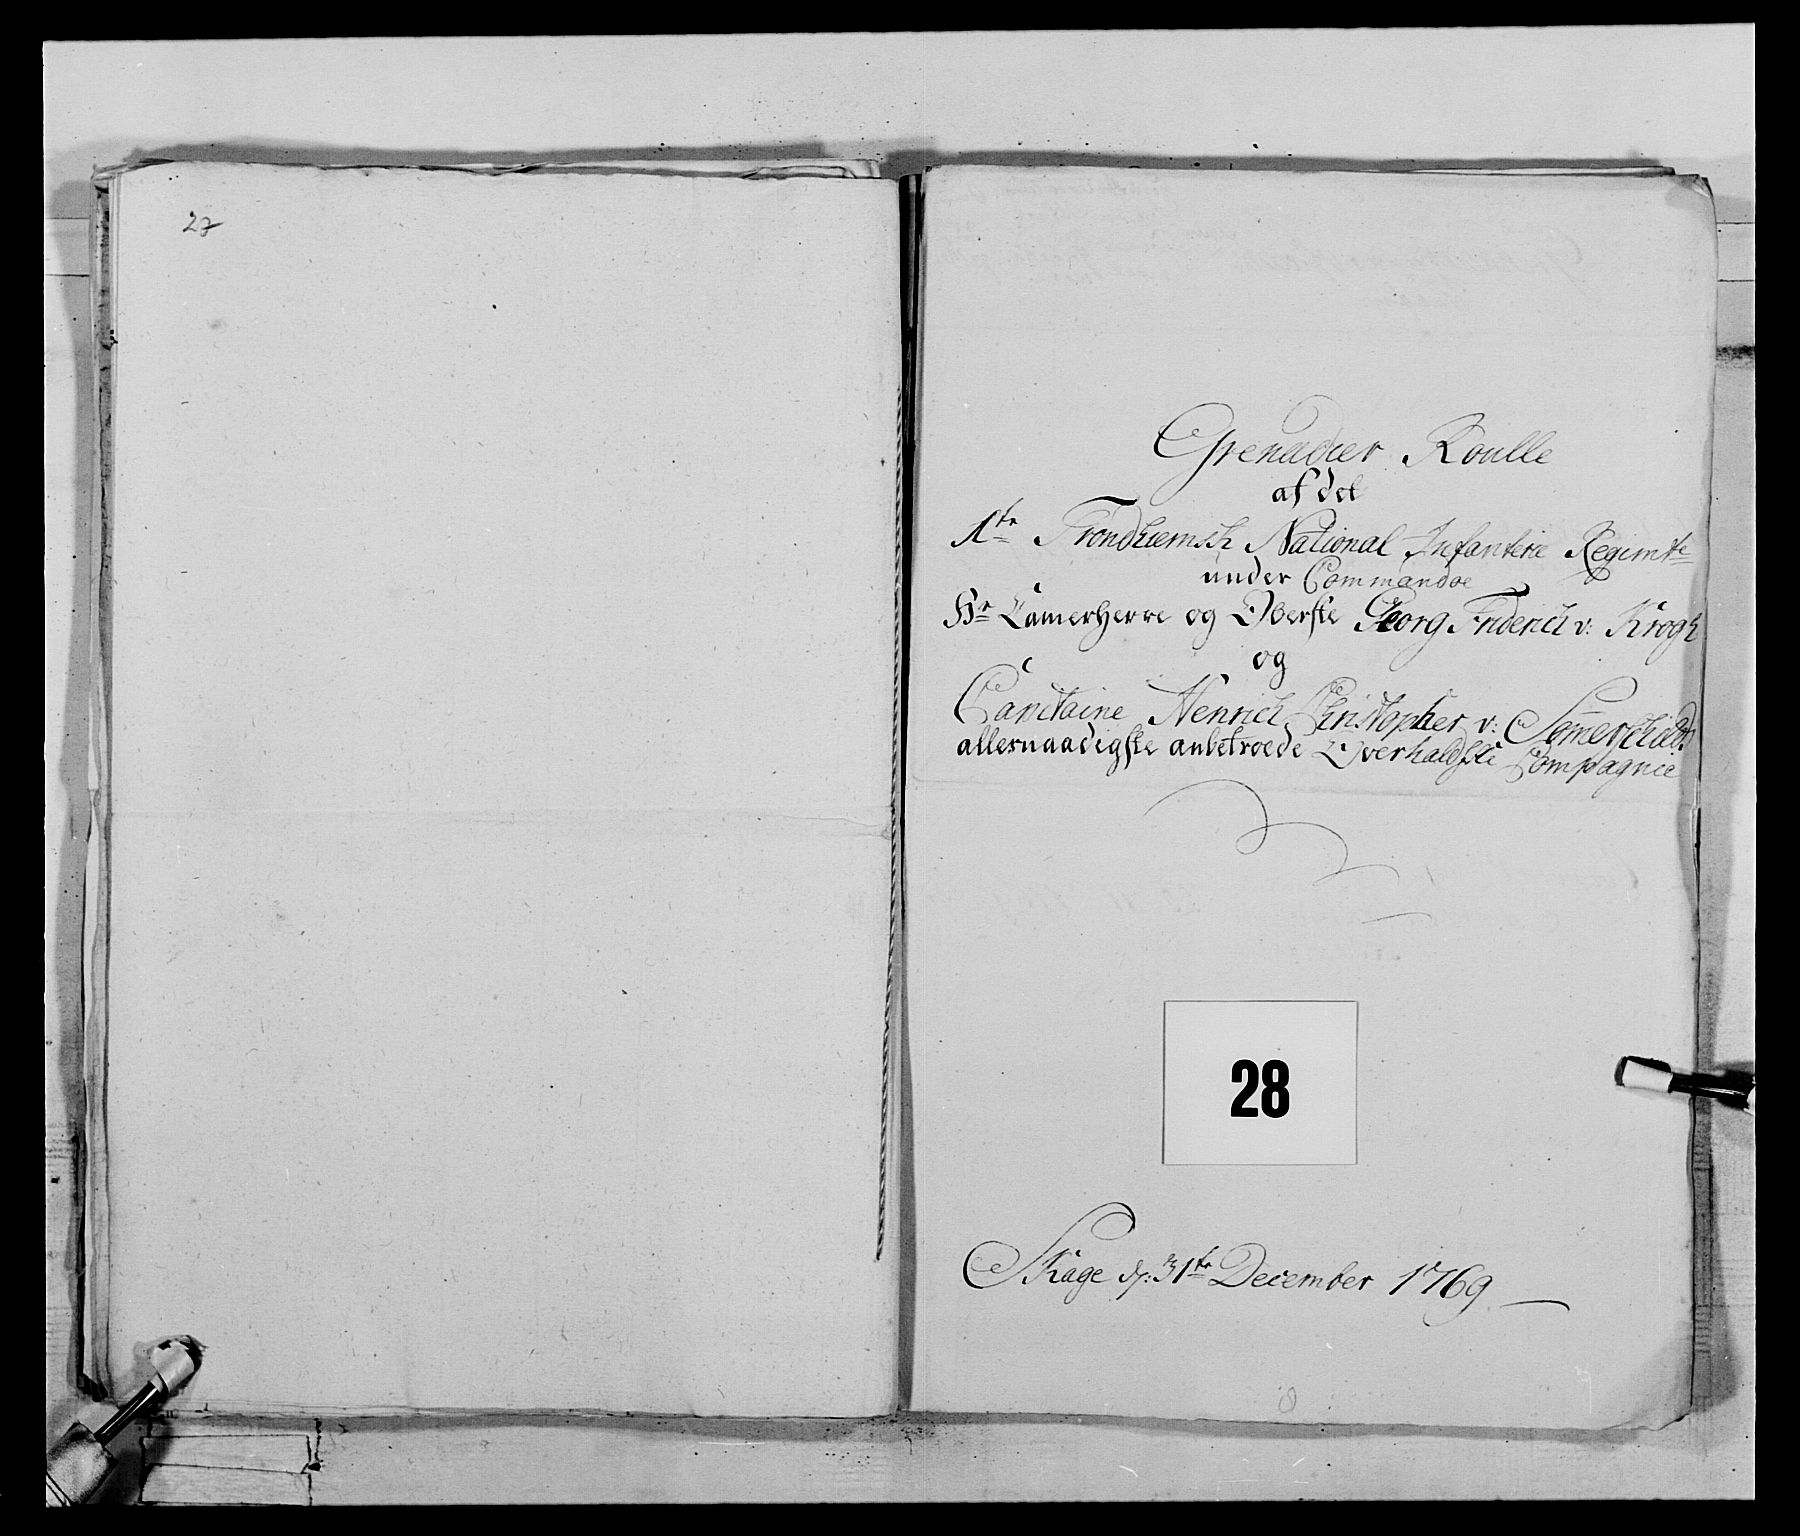 27
Grenadier Roulle
af det
1te Trondhiemsk National Infanterie Regimte
under Commandoe
Hr Camerherre og Oberste Georg Friderich v: Krogh
og
Capitaine Henrich Christopher v:
allernaadigste anbetroede Overhaldske Compagnie
28
Skage d: 31te December 1769